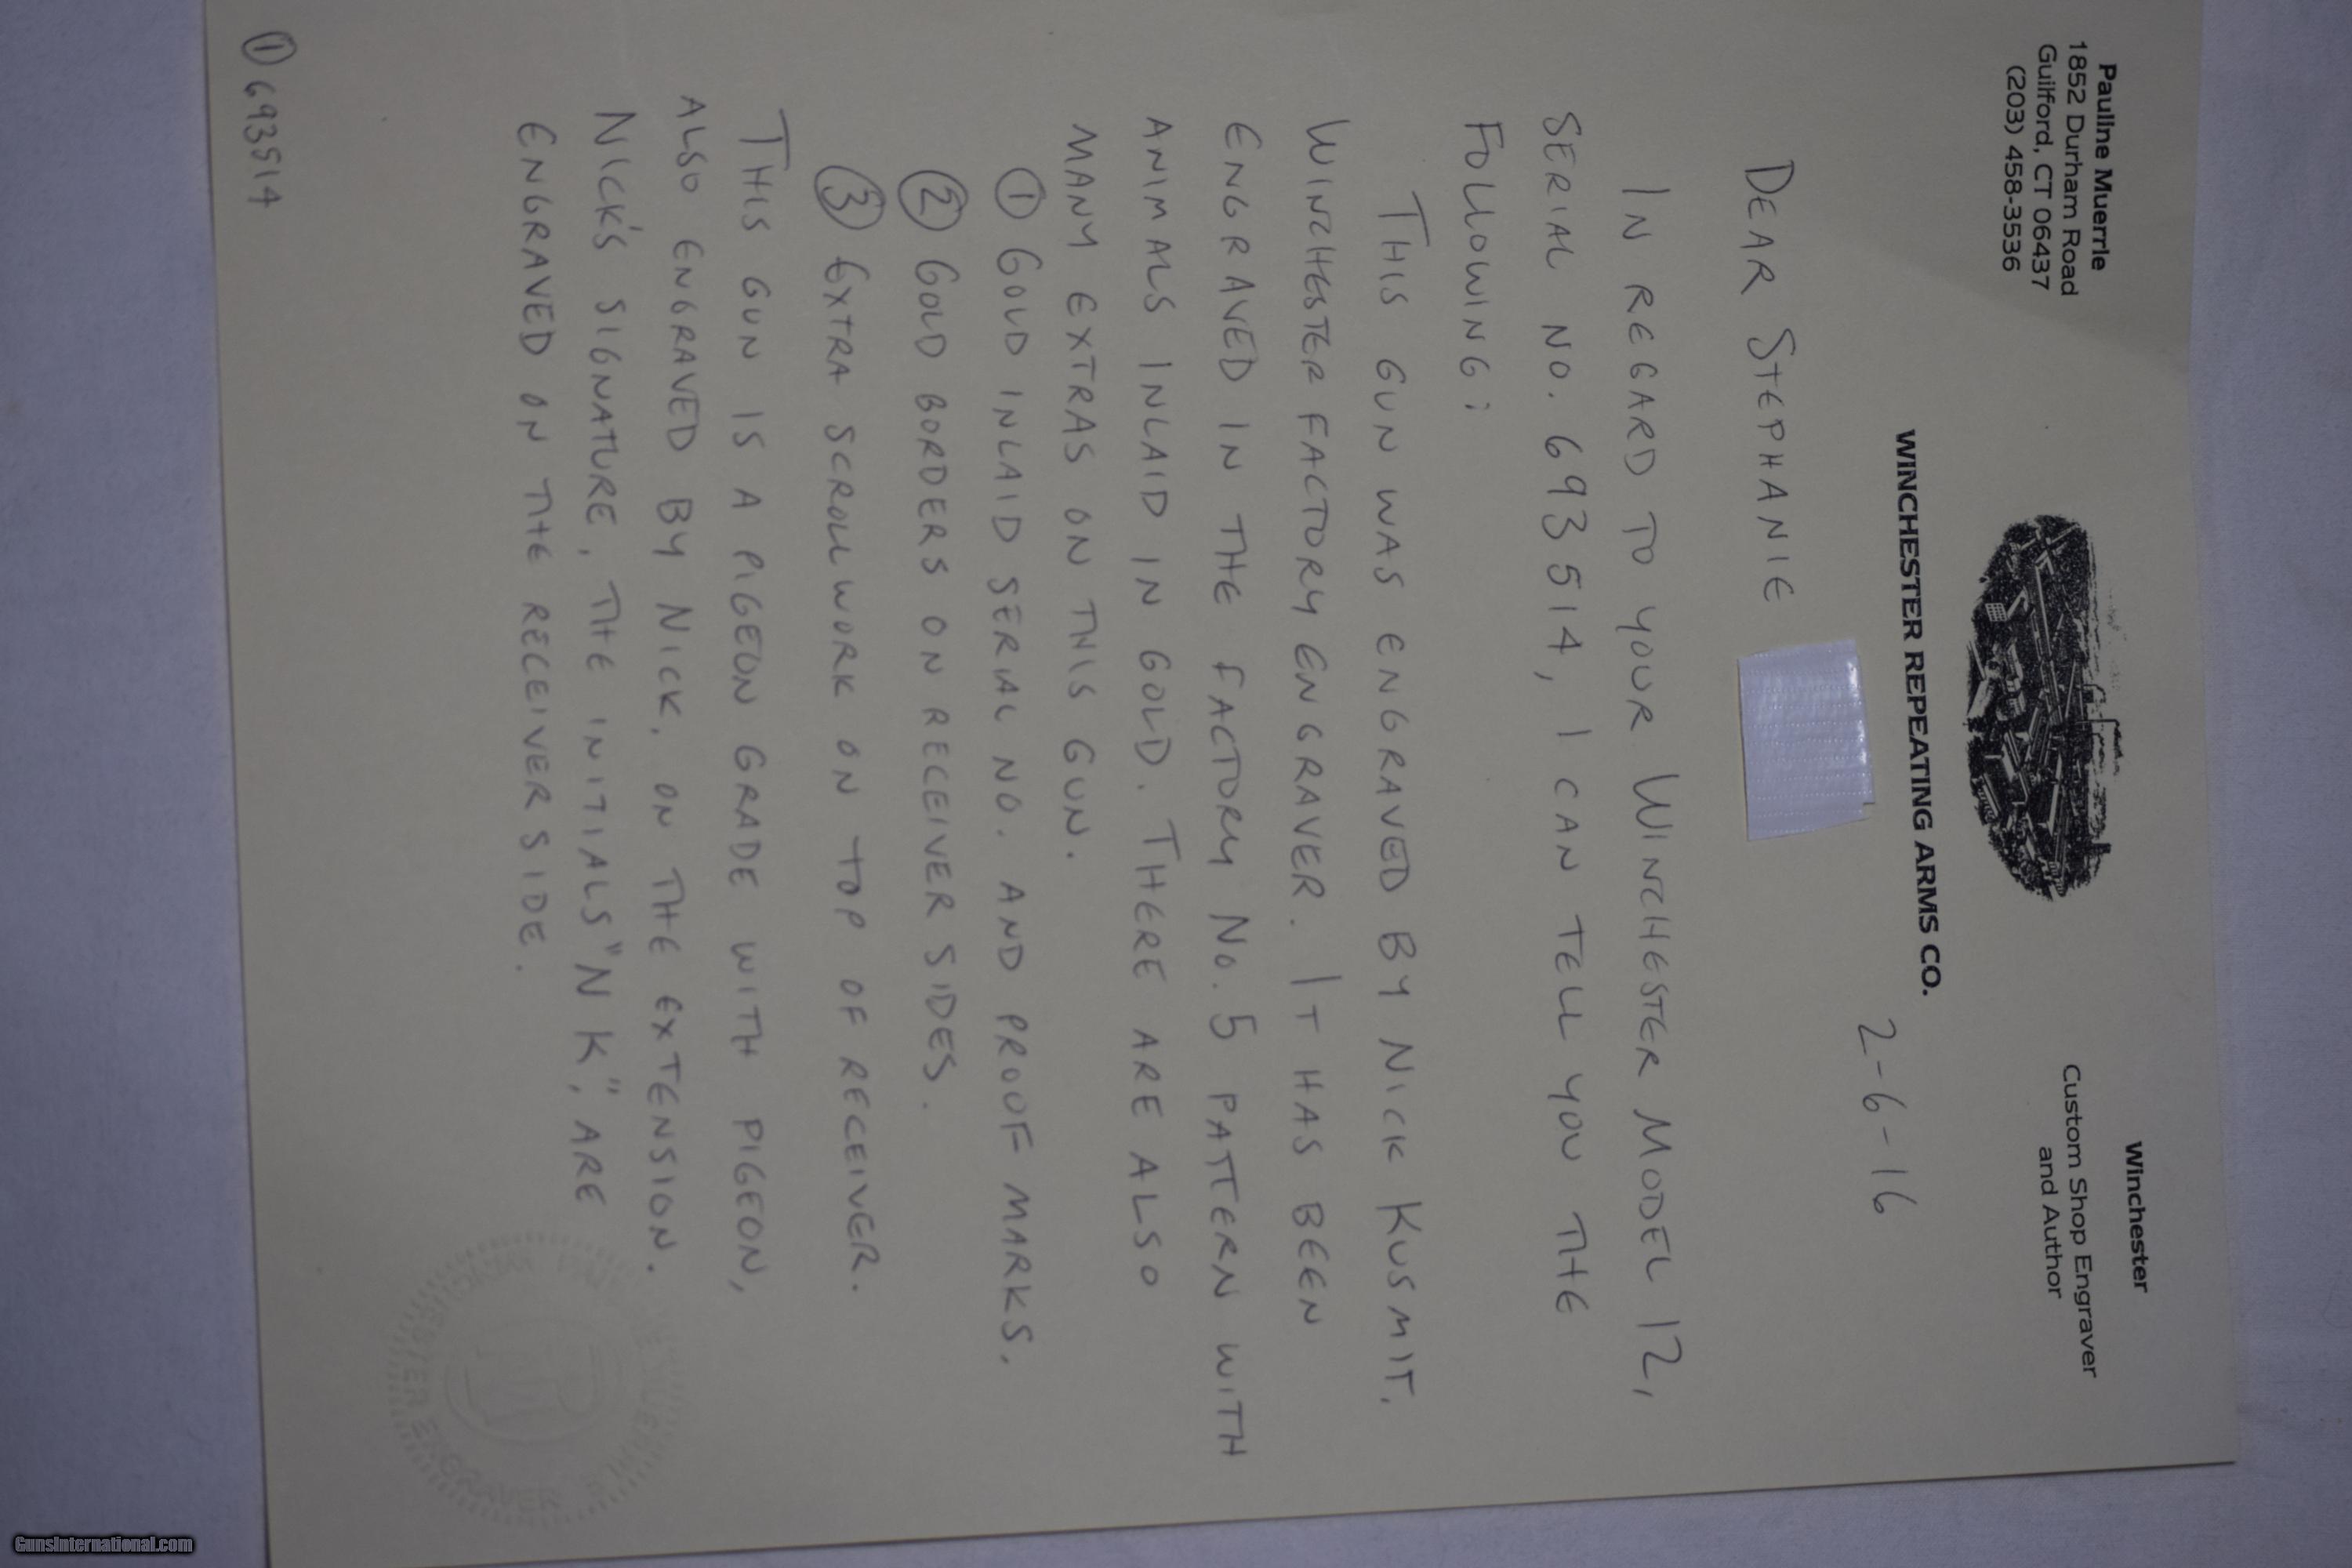 Pauline Muerrle
1852 Durham Road
Guilford, CT 06437
(203) 458-3536
Winchester
Custom Shop Engraver
and Author
WINCHESTER REPEATING ARMS CO.
2-6-16
DEAR STEPHANIE
IN REGARD TO YOUR WINCHESTER MODEL 12,
SERIAL NO. 693514, I CAN TELL YOU THE
FOLLOWING:
THIS GUN WAS ENGRAVED BY NICK KUSMIT.
WINCHESTER FACTORY ENGRAVER. IT HAS BEEN
ENGRAVED IN THE FACTORY NO. 5 PATTERN WITH
ANIMALS INLAID IN GOLD. THERE ARE ALSO
MANY EXTRAS ON THIS GUN.
① GOLD INLAID SERIAL NO. AND PROOF MARKS.
② GOLD BORDERS ON RECEIVER SIDES.
③ EXTRA SCROLLWORK ON TOP OF RECEIVER.
THIS GUN IS A PIGEON GRADE WITH PIGEON,
ALSO ENGRAVED BY NICK, ON THE EXTENSION.
NICK'S SIGNATURE, THE INITIALS "N K", ARE
ENGRAVED ON THE RECEIVER SIDE.
① 693514
GunsInternational.com